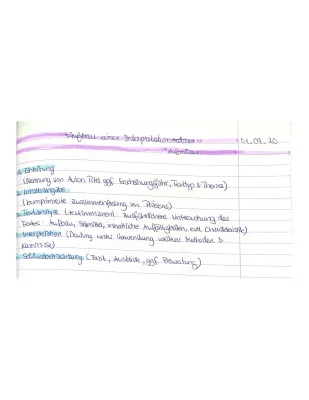 Aufbau einer Interpretation
Aufsatzes
01.09.20
1. Einleitung
(Nennung von Autor, Titel, ggf. Erscheinungsjahr, Texttyp & Thema)
2. Inhaltsangabe
(komprimierte Zusammenfassung im Präsens)
3. Textanalyse (textimmanent: ausführlichere Untersuchung des
Textes: Aufbau, Stilmittel, sprachliche Auffälligkeiten, evtl. Charakteristik)
4. Interpretation (Deutung unter Verwendung weiterer Methoden &
Kenntnisse)
5. Schlussbetrachtung (Fazit, Ausblick, ggf. Bewertung)